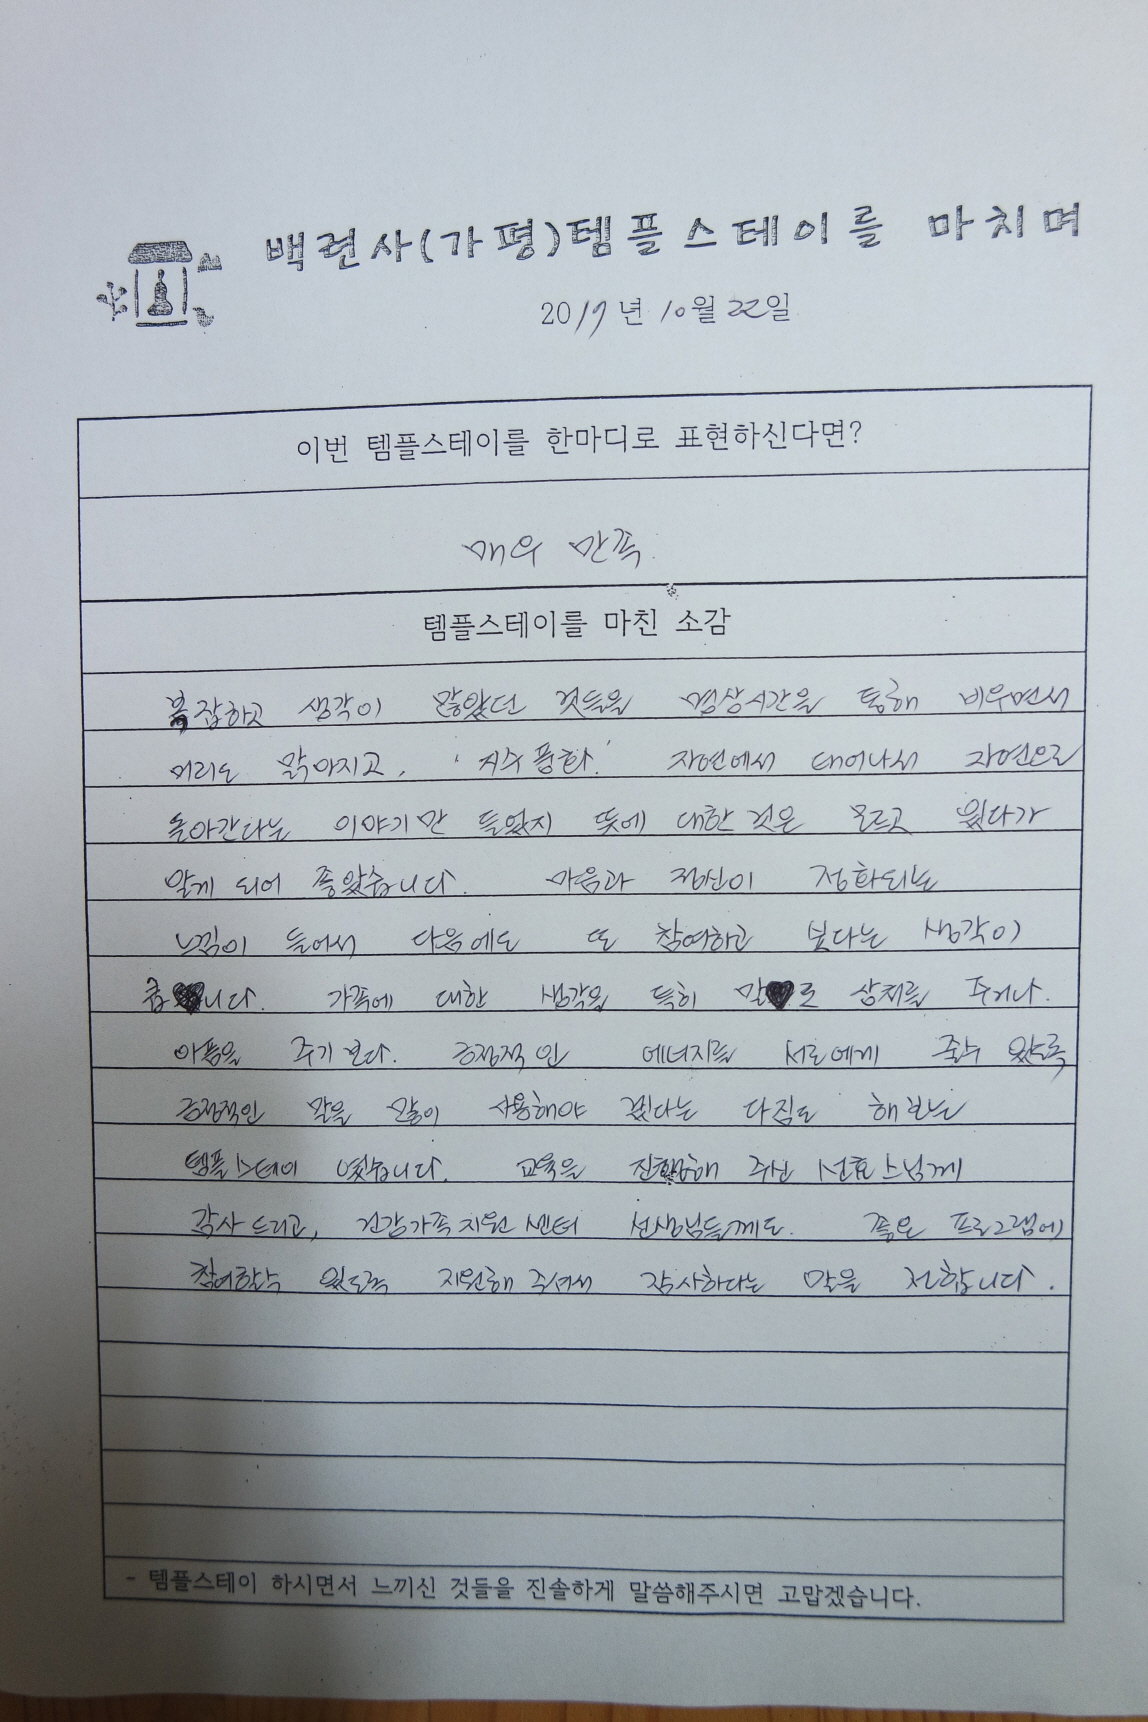 백련사(가평)템플스테이를 마치며
2017년 10월 22일
이번 템플스테이를 한마디로 표현하신다면?
매우 만족.
템플스테이를 마친 소감
복잡하고 생각이 많았던 것들을 명상시간을 통해 비우면서
머리도 맑아지고, '지수풍화' 자연에서 태어나서 자연으로
돌아간다는 이야기만 들었지 뜻에 대한 것은 모르고 있다가
알게 되어 좋았습니다. 마음과 정신이 정화되는
느낌이 들어서 다음에도 또 참여하고 싶다는 생각이
듭니다. 가족에 대한 생각을 특히 말로 상처를 주거나.
아픔을 주기 보다. 긍정적인 에너지를 서로에게 줄수 있도록
긍정적인 말을 많이 사용해야 겠다는 다짐도 해보는
템플스테이 였습니다. 교육을 진행해 주신 선효스님께
감사드리고, 건강가족지원센터 선생님들께도. 좋은 프로그램에
참여할수 있도록 지원해 주셔서 감사하다는 말을 전합니다.
- 템플스테이 하시면서 느끼신 것들을 진솔하게 말씀해주시면 고맙겠습니다.